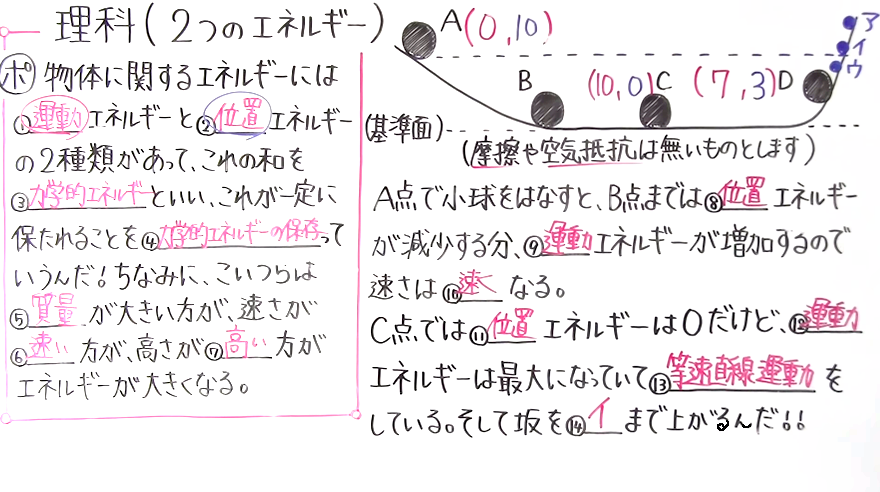 理科(2つのエネルギー)
ポ 物体に関するエネルギーには
①運動エネルギーと②位置エネルギー
の2種類があって、これの和を
③力学的エネルギーといい、これが一定に
保たれることを④力学的エネルギーの保存って
いうんだ!ちなみに、こいつらは
⑤質量が大きい方が、速さが
⑥速い方が、高さが⑦高い方が
エネルギーが大きくなる。
A(0,10)
ア
イ
ウ
B
(10,0)C
(7,3)D
(基準面)
(摩擦や空気抵抗は無いものとします)
A点で小球をはなすと、B点までは⑧位置エネルギー
が減少する分、⑨運動エネルギーが増加するので
速さは⑩速くなる。
C点では⑪位置エネルギーは0だけど、⑫運動
エネルギーは最大になっていて⑬等速直線運動を
している。そして坂を⑭イまで上がるんだ!!